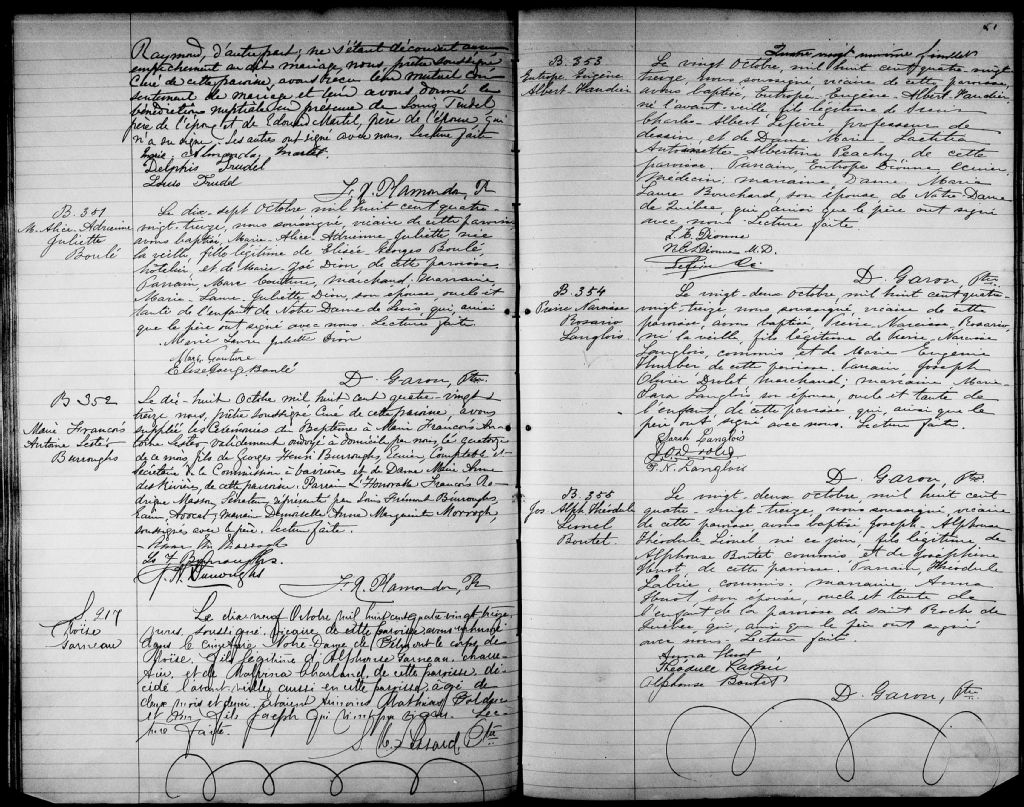 Raymond, d'autre part; ne s'étant découvert aucun
empêchement au dit mariage, nous, prêtre soussigné
Curé de cette paroisse, avons reçu leur mutuel con
sentement de mariage et leur avons donné la
bénédiction nuptiale en présence de Louis Trudel
père de l'époux et de Edouard Martel, père de l'épouse qui
n'a su signer. Les autres ont signé avec nous. Lecture faite
Delphis Trudel
Louis Trudel
F. X. Plamondon, Ptre
B. 351
M. Alice Adrienne
Juliette
Boulé
Le dix-sept Octobre mil huit cent quatre
vingt-treize, nous soussigné, vicaire de cette paroisse
avons baptisé, Marie-Alice-Adrienne Juliette née
la veille, fille légitime de Elisée-Georges Boulé
hôtelier, et de Marie-Zoé Dion, de cette paroisse.
Parrain, Marc Couture, marchand. Marraine
Marie-Laure-Juliette Dion, son épouse, oncle et
tante de l'enfant de Notre Dame de Levis, qui, ainsi
que le père ont signé avec nous. Lecture faite
Marie Laure Juliette Dion
Marc Couture
Elisé Georg Boulé
D. Garon, Ptre
B 352
Marie François
Antoine
Burroughs
Le dix-huit Octobre mil huit cent quatre-vingt
treize nous, prêtre soussigné Curé de cette paroisse, avons
suppléé les Cérémonies du Baptême à Marie François An
toine validement ondoyé à domicile par nous le quatorze
de ce mois, fils de Georges Henri Burroughs, Ecuier, Comptable et
Secrétaire de la Commission à barrières et de Dame Marie Anne
DesRivières, de cette paroisse. Parrain L'Honorable François Ro
drigue Masson, Sénateur, représenté par Louis Burroughs,
Ecuier, Avocat; marraine Demoiselle Anne Marguerite Morrogh,
soussignés avec le père. Lecture faite.
Burroughs
Burroughs
F. X. Plamondon, Ptre
S. 217
Moïse
Garneau
Le dix-neuf Octobre mil huit cent quatre vingt treize,
nous, soussigné, Vicaire de cette paroisse avons inhumé
dans le cimetière Notre-Dame de Belmont le corps de
Moïse, fils légitime d'Alphonse Garneau, charre-
tier, et de Malvina Charland, de cette paroisse, dé-
cédé l'avant-veille, aussi en cette paroisse, agé de
deux mois et demi. Etaient témoins Mathias
et son fils Joseph qui n'ont su signer. Lec-
ture faite.
Ptre
61
Quatre vingt
B. 353
Eutrope, Eugène
Albert
Le vingt Octobre, mil huit cent quatre-vingt
treize, nous soussigné vicaire de cette paroisse,
avons baptisé, Eutrope, Eugène, Albert
né l'avant-veille fils légitime de Sieur
Charles-Albert Lefèvre, professeur de
dessin, et de Dame Marie Laetitia
Antoinette Albertine Peachy, de cette
paroisse. Parrain, Eutrope Dionne, écuier,
Médecin; marraine Dame Marie
Laure Bouchard, son épouse, de Notre-Dame
de Québec, qui, ainsi que le père ont signé
avec nous. Lecture faite.
L. B. Dionne
N. E. Dionne M.D.
D. Garon, Ptre
B. 354
Pierre Narcisse
Rosario
Langlois
Le vingt-deux Octobre, mil huit cent quatre-
vingt-treize, nous soussigné, vicaire de cette
paroisse, avons baptisé, Pierre, Narcisse, Rosario,
né la veille, fils légitime de Pierre Narcisse
Langlois, commis et de Marie Eugénie
de cette paroisse. Parrain Joseph
Olivier Drolet marchand; marraine Marie-
Sara Langlois son épouse, oncle et tante de
l'enfant, de cette paroisse, qui, ainsi que le
père, ont signé avec nous. Lecture faite.
Sarah Langlois
P. N. Langlois
D. Garon, Ptre
B. 355
Jos. Alph. Théodule
Lionel
Boutet
Le vingt-deux octobre, mil huit cent
quatre-vingt-treize, nous soussigné, vicaire
de cette paroisse, avons baptisé Joseph-Alphonse
Théodule Lionel né ce jour, fils légitime de
Alphonse Boutet commis et de Joséphine
Huot, de cette paroisse. Parrain, Théodule
Labrie, commis, marraine Anna
Huot, son épouse, oncle et tante de
l'enfant de la paroisse de saint Roch de
Québec qui, ainsi que le père ont signé
avec nous. Lecture faite
Anna Huot
Théodule Labrie
Alphonse Boutet
D. Garon, Ptre